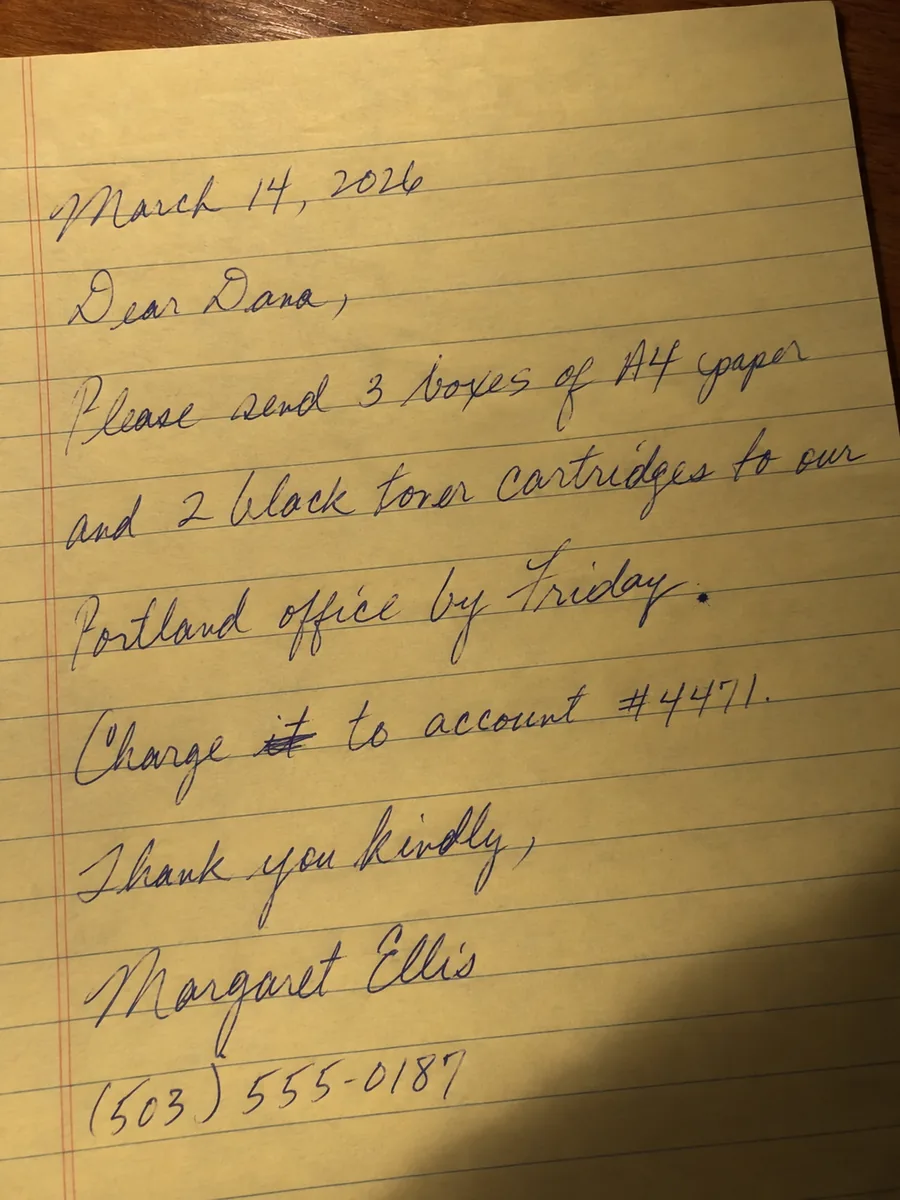 March 14, 2026
Dear Dana,
Please send 3 boxes of A4 paper
and 2 black toner cartridges to our
Portland office by Friday.
Charge it to account #4471.
Thank you kindly,
Margaret Ellis
(503) 555-0187